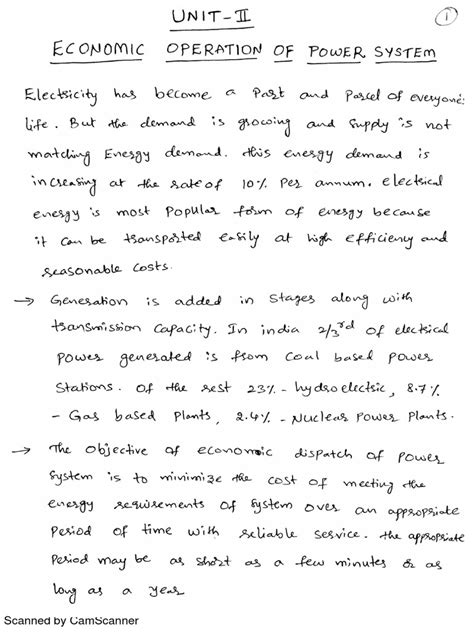 UNIT-II
1
ECONOMIC OPERATION OF POWER SYSTEM
Electricity has become a Part and Parcel of everyone's
life. But the demand is growing and supply is not
matching Energy demand. this energy demand is
increasing at the rate of 10% Per annum. electrical
energy is most Popular form of energy because
it can be transported easily at high efficiency and
reasonable costs.
→ Generation is added in Stages along with
transmission capacity. In india 2/3rd of electrical
power generated is from Coal based Power
Stations. of the rest 23% - hydroelectric, 8.7%
- Gas based Plants, 2.4% - Nuclear Power Plants.
→ The objective of economic dispatch of power
system is to minimize the cost of meeting the
energy requirements of System over an appropriate
Period of time with reliable service. the appropriate
Period may be as short as a few minutes or as
long as a year
Scanned by CamScanner